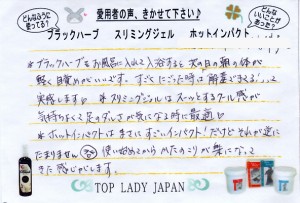 どんなふうに使ってる?
愛用者の声、きかせて下さい♪
どんないいことがあった?
ブラックハーブ スリミングジェル ホットインパクト
*ブラックハーブをお風呂に入れて入浴すると次の日の朝の体が
軽く目覚めがいいです。すごくにごった時は酵素できてる!って
実感します *スリミングジェルはスーッとするクール感が
気持ちよくて足のダルさが気になる時に最適♡
*ホットインパクトはまさにすごいインパクト!だけどそれが逆に
たまりません 使い始めてから肩のこりが楽になって
きた感じがします。
TOP LADY JAPAN